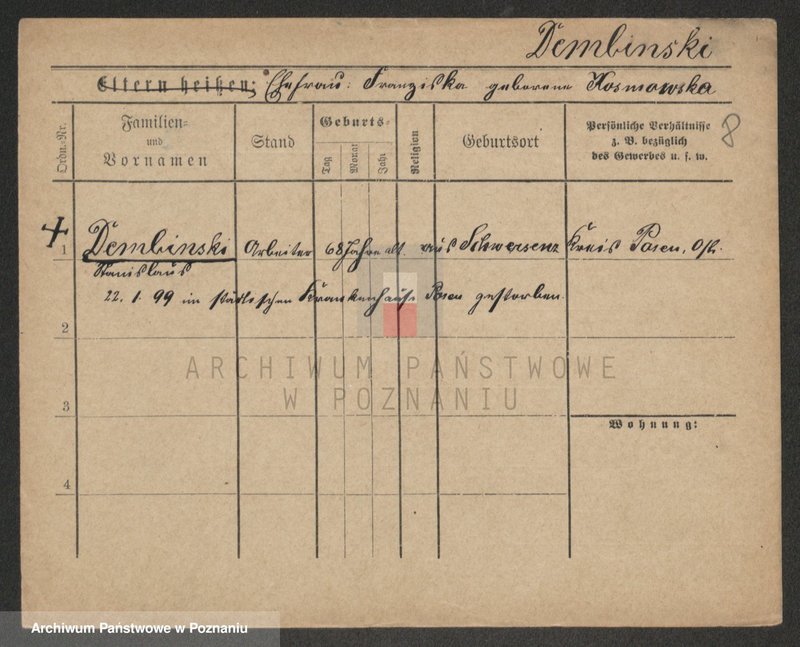 Dembinski
Eltern heißen: Ehefrau: Franziska geborene Kosmowska
8
Ordn.-Nr.
Familien- und Vornamen
Stand
Geburts-
Tag
Monat
Jahr
Religion
Geburtsort
Persönliche Verhältnisse
z. B. bezüglich
des Gewerbes u. s. w.
1 Dembinski Arbeiter 68 Jahre alt. aus Schwersenz Kreis Posen,
Stanislaus
22. 1. 99 im städtischen Krankenhause Posen gestorben.
2
ARCHIWUM PAŃSTWOWE
W POZNANIU
3
Wohnung:
4
Archiwum Państwowe w Poznaniu